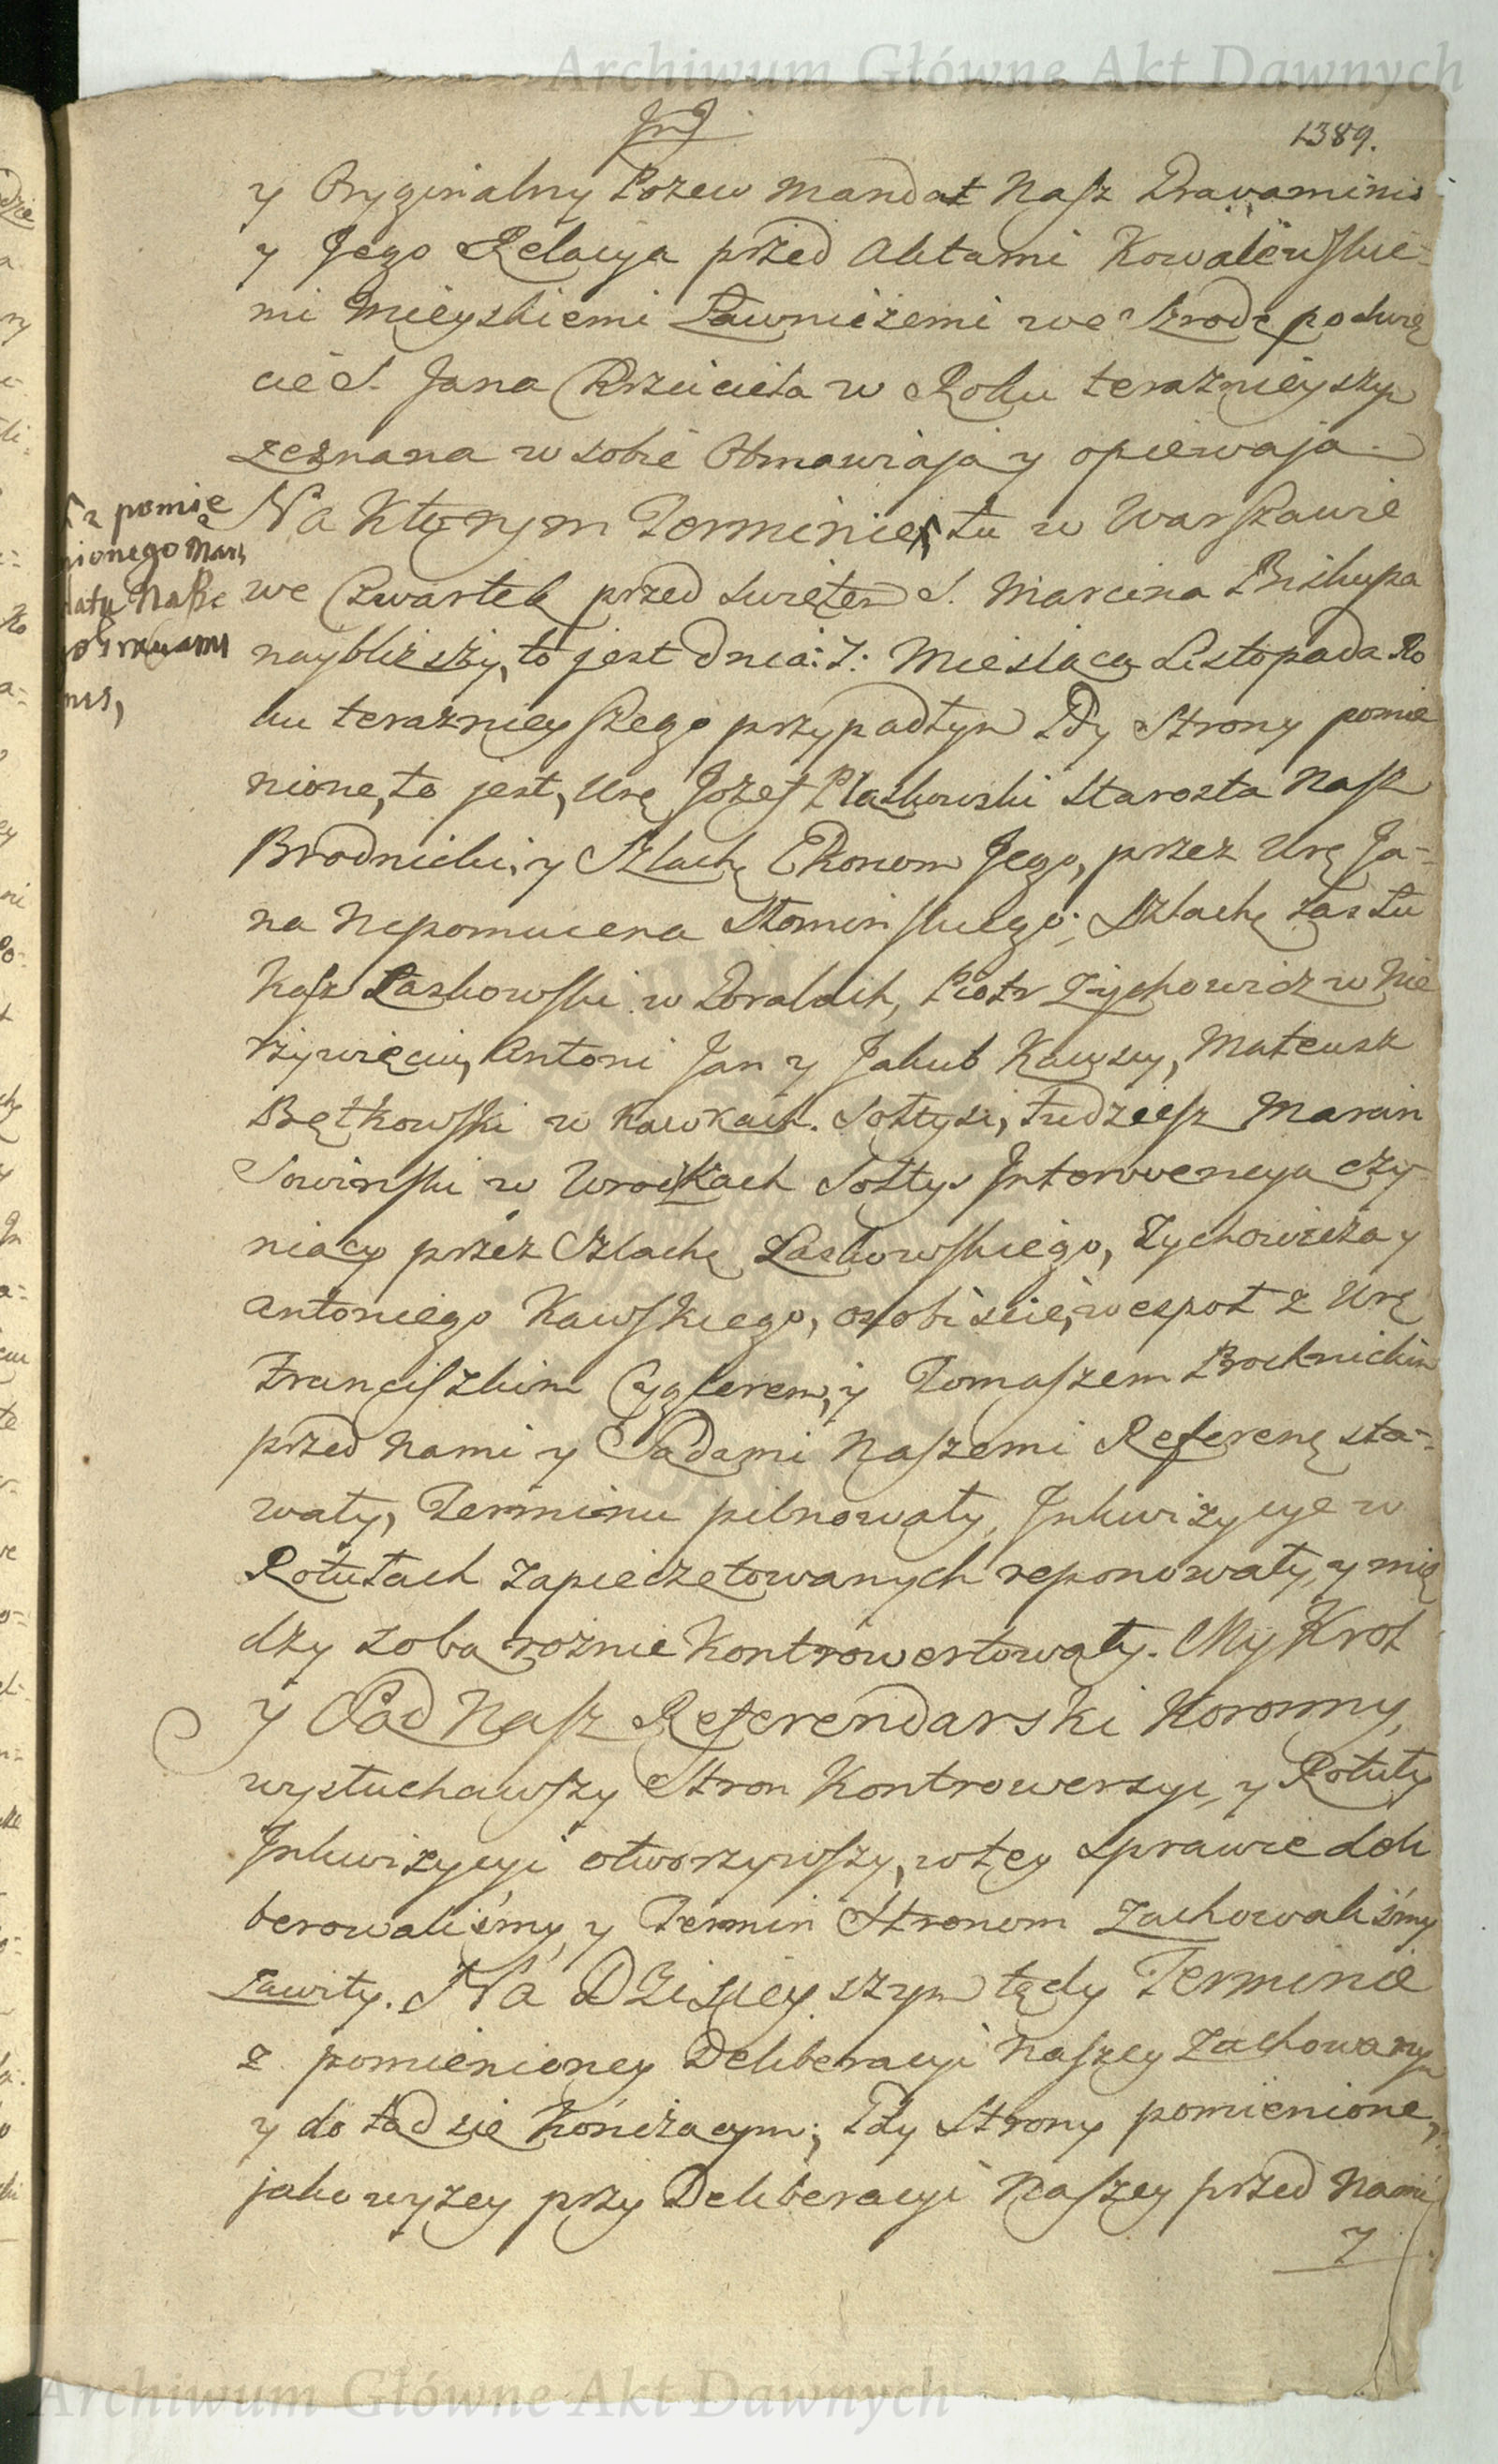 Archiwum Główne Akt Dawnych
1389.
y Oryginalny Pozew Mandat Nasz Gravaminis
y Jego Relacya przed Aktami Kowalewskie-
mi Mieyskiemi Ławniczemi we Srodę po Swię
cie S. Jana Krzciciela w Roku teraznieyszym
zeznana w sobie Obmawiaja y opiewaja.
Na Ktorym Terminie tu w Warszawie
z pomie
nionego Man
datu Nasze
go Gravami
nis,
we Czwartek przed Swiętem S. Marcina Biskupa
naybliższy, to jest dnia: 7: Miesiąca Listopada Ro
ku teraznieyszego przypadłym Gdy Strony pomie
nione, to jest, Urę Jozef Pląskowski Starosta Nasz
Brodnicki, y Szlachę Ekonom Jego, przez Urę Ja-
na Nepomucena Słominskiego; Szlachę zas Łu
kasz Laskowski w Goralach, Piotr Zychowicz w Nie
żywięciu, Antoni Jan y Jakub Kawscy, Mateusz
Bętkowski w Kawkach. Sołtysi, tudziesz Marcin
Sowinski w Wrockach Sołtys Interwencya czy-
niący przez Szlachę Laskowskiego, Zychowicza y
Antoniego Kawskiego, osobiscie, wespoł z Urę
Franciszkim Cyglerem, y Tomaszem
przed Nami y Sądami Naszemi Referenę sta-
wały, Terminu pilnowały, Inkwizycye w
Rotułach zapieczętowanych reponowały, y mię
dzy sobą rożnie Kontrowertowały. My Krol
y Sąd Nasz Referendarski Koronny,
wysłuchawszy Stron Kontrowersyi, y Rotuły
Inkwizycyi otworzywszy, w tey Sprawie deli
berowaliśmy, y Termin Stronom Zachowaliśmy
zawity. Na Dzisieyszym tedy Terminie
z pomienioney Deliberacyi Naszey Zachowanym
y do tąd się kończącym; Gdy Strony pomienione,
jako wyzey przy Deliberacyi Naszey przed Nami
y
Archiwum Główne Akt Dawnych